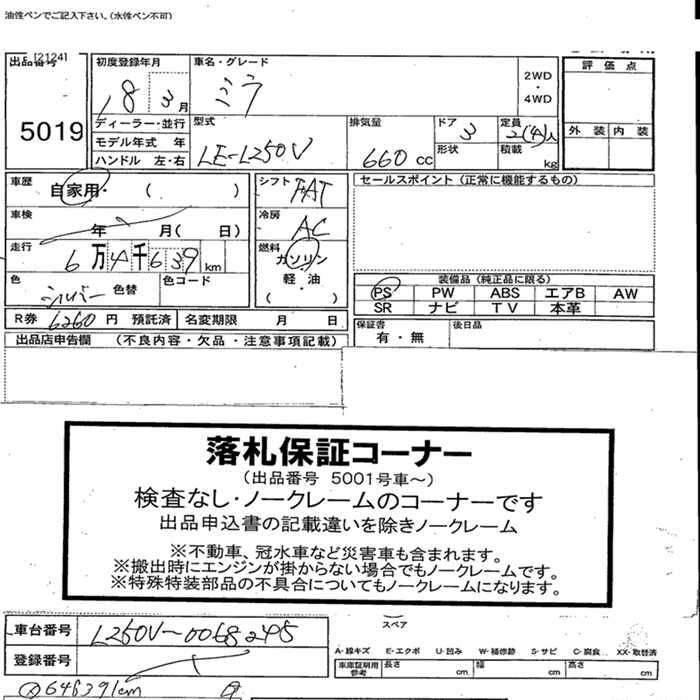 油性ペンでご記入下さい。(水性ペン不可)
出品番号 [2124]
5019
初度登録年月
18 3月
車名・グレード
ミラ
2WD
・
4WD
評価点
外装 内装
ディーラー・並行
モデル年式 年
ハンドル 左・右
型式
LE-L250V
排気量
660 CC
ドア
3
形状
定員
2(4)人
積載
kg
車歴
自家用・( )
車検
年 月( 日)
走行
6万4千639 km
色
シルバー 色替
色コード
シフト FAT
冷房
AC
燃料
ガソリン
軽・油
( )
セールスポイント(正常に機能するもの)
装備品(純正品に限る)
PS PW ABS エアB AW
SR ナビ TV 本革
R券 6260円 預託済 名変期限 月 日
保証書
有・無
後日品
出品店申告欄 (不良内容・欠品・注意事項記載)
落札保証コーナー
(出品番号 5001号車～)
検査なし・ノークレームのコーナーです
出品申込書の記載違いを除きノークレーム
※不動車、冠水車など災害車も含まれます。
※搬出時にエンジンが掛からない場合でもノークレームです。
※特殊特装部品の不具合についてもノークレームになります。
車台番号 L250V-0068295
登録番号
スペア
A-線キズ E-エクボ U-凹み W-補修跡 S-サビ C-腐食 XX-取替済
車庫証明用
参考
長さ cm 幅 cm 高さ cm
64639km